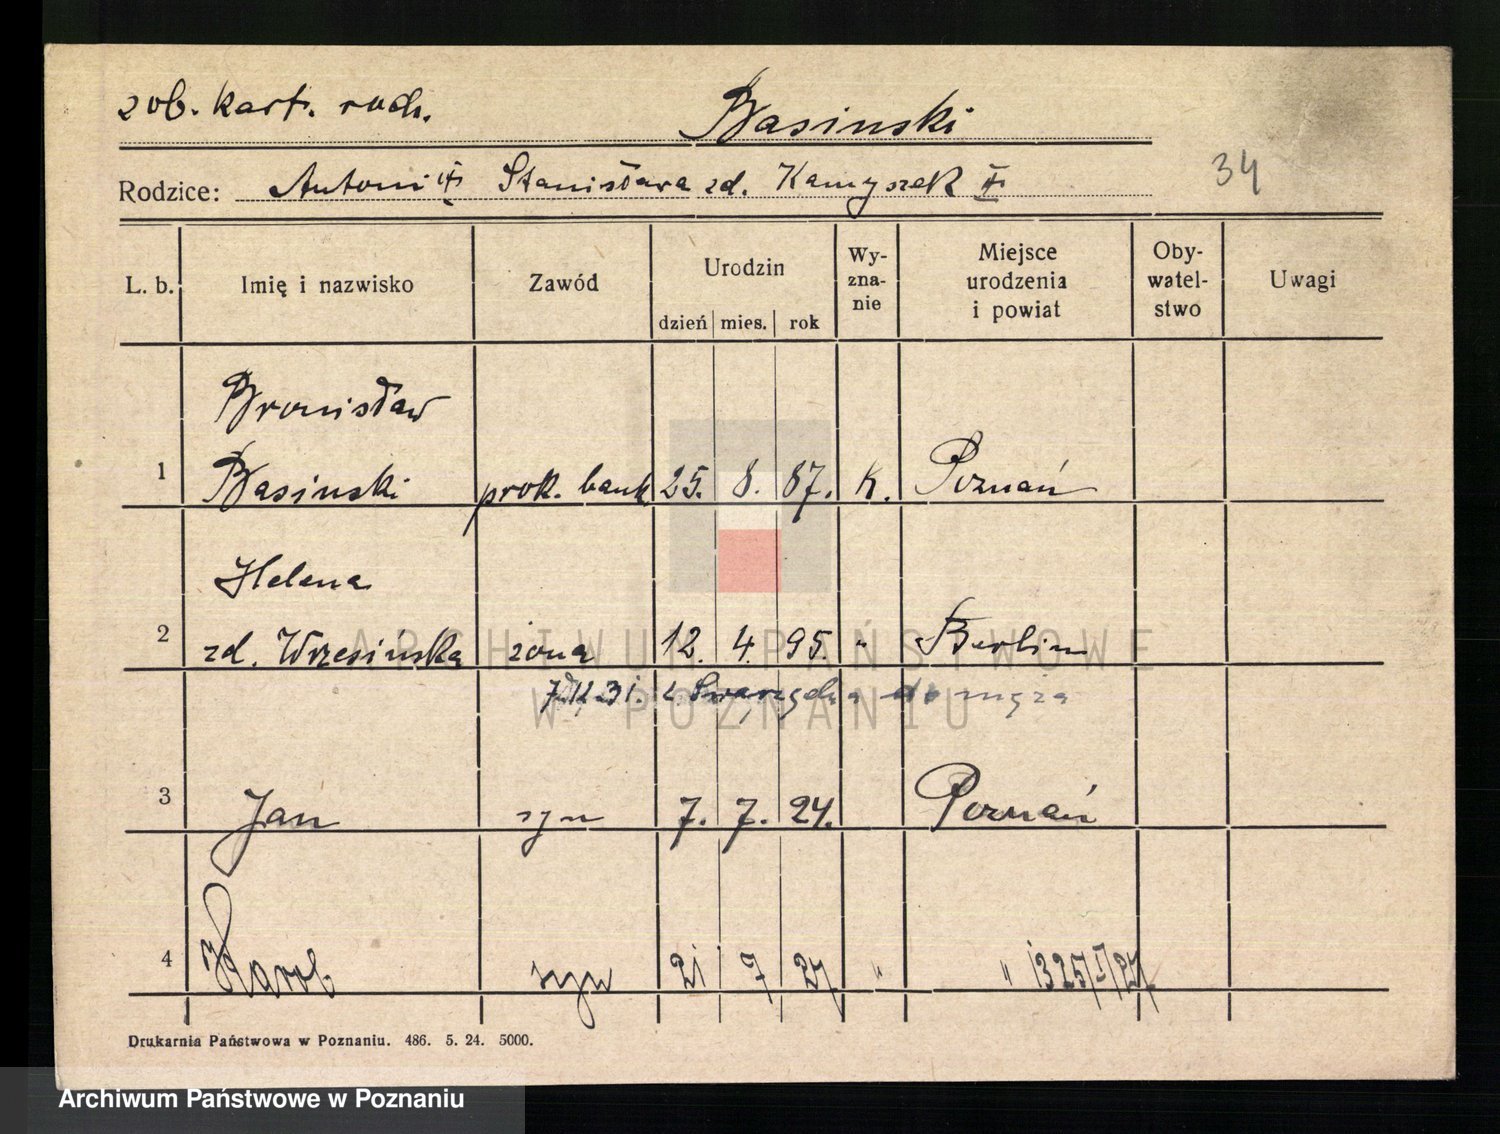 zob. kart. rodz.
Basinski
34
Rodzice: Antoni Stanisława zd. Kamyszek
L. b. Imię i nazwisko Zawód Urodzin dzień mies. rok Wy-zna-nie Miejsce urodzenia i powiat Oby-watel-stwo Uwagi
Bronisław
1 Basinski prok. bank 25. 8. 87. k. Poznań
Helena
2 zd. Wrzesińska żona 12. 4. 95. " Berlin
31. z Swarzędza do męża
3 Jan syn 7. 7. 24. Poznań
4 Karol syn 21 7 27 " "
ARCHIWUM PAŃSTWOWE
W POZNANIU
Drukarnia Państwowa w Poznaniu. 486. 5. 24. 5000.
Archiwum Państwowe w Poznaniu